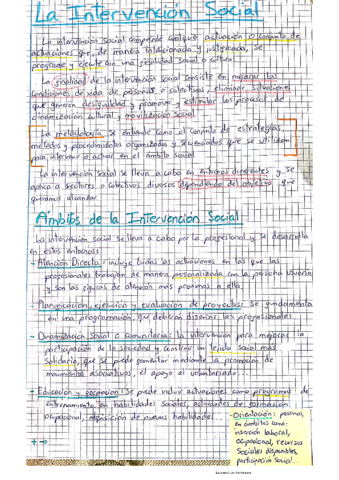 La Intervención Social
La intervención social comprende cualquier actuación o conjunto de
actuaciones que, de manera intencionada y justificada, se
programe y ejecute con una finalidad social o cultural.
La finalidad de la intervención social consiste en mejorar las
condiciones de vida de personas o colectivos, eliminar situaciones
que generen desigualdad y promover y estimular los procesos de
dinamización cultural y movilización social.
La metodología se entiende como el conjunto de estrategias,
métodos y procedimientos organizados y secuenciados que se utilizan
para intervenir o actuar en el ámbito social.
La intervención social se lleva a cabo en entornos diferentes y se
aplica a sectores o colectivos diversos dependiendo del objetivo que
queramos alcanzar.
Ámbitos de la Intervención Social
La intervención social se lleva a cabo por la profesional y se desarrolla
en estos entornos:
- Atención Directa: incluye todas las actuaciones en las que las
profesionales trabajan de manera personalizada con la persona usuaria
y son las figuras de atención más próximas a ella.
- Planificación, ejecución y evaluación de proyectos: Se fundamenta
en una programación, que deberán diseñar las profesionales.
- Dinamización Social o Comunitaria: la intervención para mejorar la
participación de la sociedad y construir un tejido social más
solidario, que se puede fomentar mediante la promoción de
movimientos asociativos, el apoyo al voluntariado...
- Educación y promoción: Se puede incluir actuaciones como programas de
entrenamiento en habilidades sociales, actividades de formación
ocupacional, adquisición de nuevas habilidades...
- Orientación: personal,
en ámbitos como:
inserción laboral,
ocupacional, recursos
Sociales disponibles,
participación social...